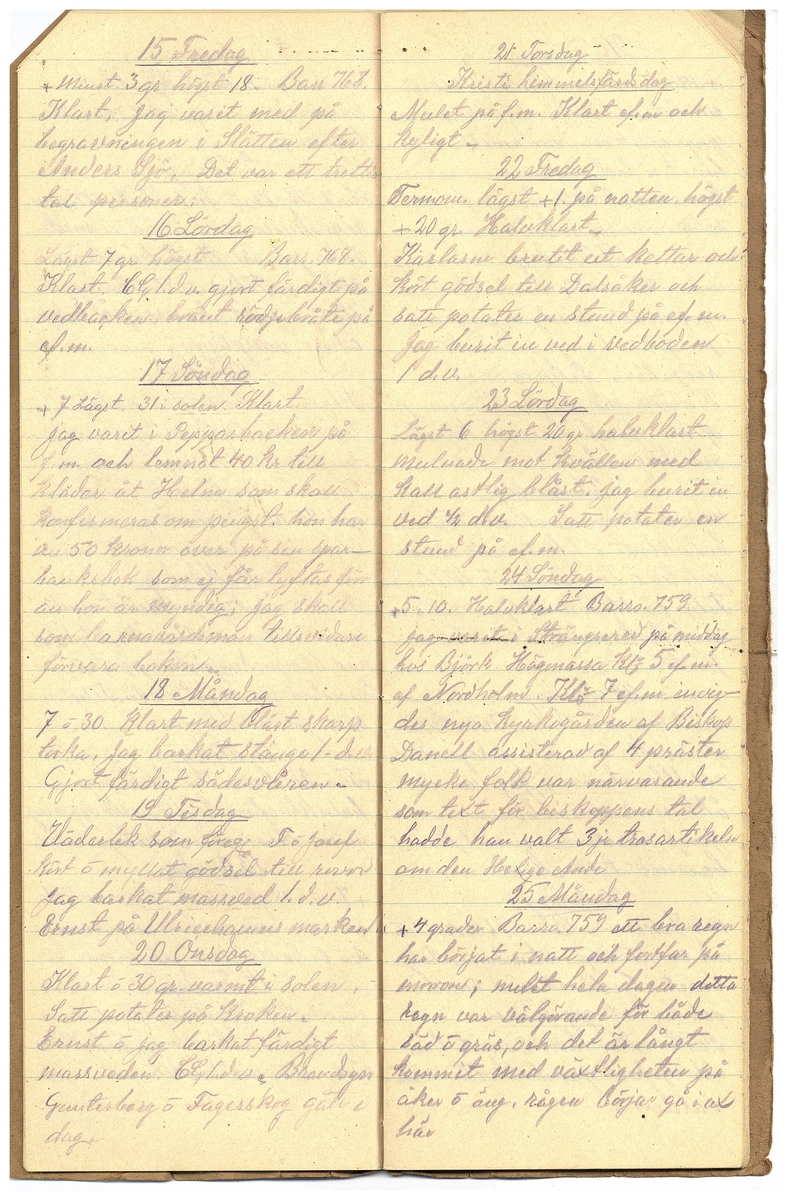 15 Fredag
+ Minst 3 gr högst 18. Barr 768.
Klart, jag varit med på
begravningen i Slätten efter
Anders Sjö. Det var ett trettio
tal personer.
16 Lördag
Lägst 7 gr högst Barr. 768.
Klart. CG 1 d.v. gjort färdigt på
vedbacken. bränt rödjebråte på
ef.m.
17 Söndag
+ 7 Lägst, 31 i solen. Klart
jag varit i Pepparbacken på
f.m. och lemnat 40 kr till
kläder åt Helna som skall
konfirmeras om pingst. hon har
äv 50 kronor över på sin spar-
banksbok som ej får lyftas för
än hon är myndig, jag skall
som barnavårdsman tillsvidare
förvara boken.
18 Måndag
7 o 30 Klart med blåst skarp
torka, jag barkat slänge 1 d.v.
Gjort färdigt sädesvåren.
19 Tisdag
Väderlek som föreg. F o Josef
kört o myllat gödsel till rovor
jag barkat massved 1. d. v.
Ernst på Ulricehamns marken
20 Onsdag
Klart o 30 gr. varmt i solen,
Satt potates på Kroken.
Ernst o jag barkat färdigt
massveden. CG 1 d.v. Brandsyn
Gunterberg o Fagerskog gått i
dag.
21 Torsdag
Kristi himmelsfärdsdag
Mulet på f.m. Klart ef.m och
kyligt.
22 Fredag
Termom. lägst +1. på natten högst
+20 gr. Halvklart.
Karlarne brutit ut kattar och
kört gödsel till Dalsåker och
satt potates en stund på ef.m.
jag burit in ved i vedboden
1 d.v.
23 Lördag
Lägst 6 högst 20 gr halvklart
mulnade mot kvällen med
kall ostlig blåst. jag burit in
ved ½ d.v. Satt potates en
stund på ef.m.
24 Söndag
+5, 10. Halvklart Barro. 759
jag varit i Strängsered på middag
hos Björk. Högmässa Kl. 5 ef.m.
af Nordholm. Kl. 7 ef.m. invig-
des nya kyrkogården af Biskop
Danell assisterad af 4 präster
mycke folk var närvarande
som text för biskoppens tal
hadde han valt 3je trosartikeln
om den Helige Ande
25 Måndag
+ 4 grader Barro. 759 ett bra regn
har börjat i natt och fortfar på
moron; mulet hela dagen detta
regn var välgörande för både
säd o gräs, och det är långt
kommit med växtligheten på
åker o äng. rågen börjar gå i ax
här